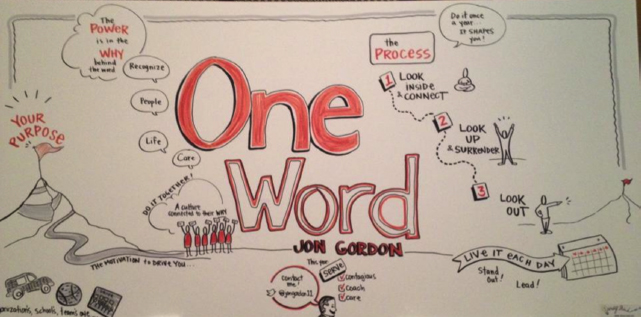 The
POWER
is in the
WHY
behind
the word
Recognize
People
Life
Care
YOUR
PURPOSE
DO IT TOGETHER!
A culture
connected to their WHY
THE MOTIVATION to DRIVE YOU...
One
Word
JON GORDON
the
PROCESS
Do it once
a year...
IT SHAPES
you!
1 LOOK
INSIDE
& CONNECT
2 LOOK
UP
& SURRENDER
3 LOOK
OUT
LIVE IT EACH DAY
Stand
Out!
Lead!
This year
SERVE
contagious
coach
care
contact
me!
@jongordon11